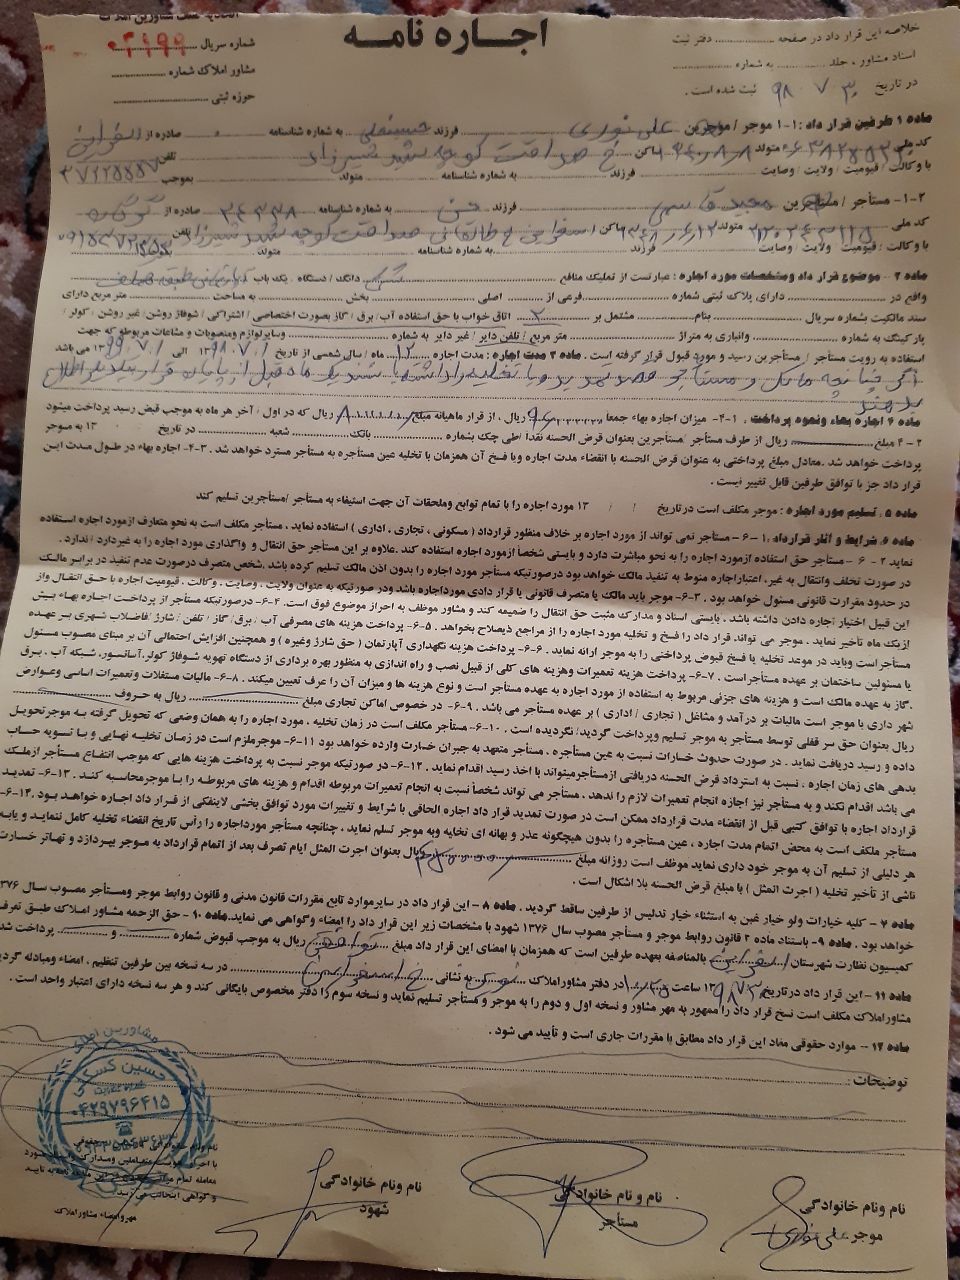 اتحادیه صنف مشاورین املاک
اجــاره نامــه
خلاصه این قرار داد در صفحه .............. دفتر ثبت
شماره سریال ۰۴۱۹۹
اسناد مشاور ، جلد ............ به شماره ............
مشاور املاک شماره ............
در تاریخ ۳۰ / ۷ / ۹۸ ثبت شده است .
حوزه ثبتی ............
ماده ۱ طرفین قرار داد : ۱-۱ موجر / موجرین علی نوری فرزند حسینعلی به شماره شناسنامه ۰ صادره از اسفراین
کد ملی متولد ساکن خ صداقت کوچه شهید شیرزاد تلفن
با وکالت / قیمومیت / ولایت / وصایت ............ فرزند ............ به شماره شناسنامه ............ متولد ............ بموجب
۲-۱- مستأجر / مستأجرین مجید قاسمی فرزند حسن به شماره شناسنامه ۲۴۳۳۸ صادره از
کد ملی متولد ساکن اسفراین خ طالقانی صداقت کوچه شهید شیرزاد تلفن
با وکالت : قیمومیت ولایت / وصایت ............ فرزند ............ به شماره شناسنامه ............ متولد ............ بموجب
ماده ۲ - موضوع قرار داد ومشخصات مورد اجاره : عبارتست از تملیک منافع ششدانگ دانگ / دستگاه . یک باب آپارتمان طبقه همکف
واقع در ............ دارای پلاک ثبتی شماره ............ فرعی از ............ اصلی ............ بخش ............ به مساحت ............ متر مربع دارای
سند مالکیت بشماره سریال ............ بنام ............ مشتمل بر ۲ اتاق خواب با حق استفاده آب / برق / گاز بصورت اختصاصی / اشتراکی / شوفاژ روشن / غیر روشن / کولر /
پارکینگ به شماره ............ وانباری به متراژ ............ متر مربع / تلفن دایر / غیر دایر به شماره ............ وسایرلوازم ومنصوبات و مشاعات مربوطه که جهت
استفاده به رویت مستأجر / مستأجرین رسید و مورد قبول قرار گرفته است . ماده ۳ مدت اجاره : مدت اجاره ۱۲ ماه / سال شمسی از تاریخ ۱ / ۷ / ۱۳۹۸ الی ۱ / ۷ / ۱۳۹۹ می باشد
اگر چنانچه مالک و مستأجر قصد تمدید و یا تخلیه را داشته باشند یک ماه قبل از پایان قرارداد باید اطلاع
بدهند
ماده ۴ اجاره بهاء ونحوه پرداخت . ۱-۴- میزان اجاره بهاء جمعا ............ ریال ، از قرار ماهیانه مبلغ ............ ریال که در اول / آخر هر ماه به موجب قبض رسید پرداخت میشود
۲ - ۴ مبلغ ............ ریال از طرف مستأجر / مستأجرین بعنوان قرض الحسنه نقدا /طی چک بشماره ............ بانک ............ شعبه ............ در تاریخ ۱۳ به موجر
پرداخت خواهد شد .معادل مبلغ پرداختی به عنوان قرض الحسنه با انقضاء مدت اجاره ویا فسخ آن همزمان با تخلیه عین مستأجره به مستأجر مسترد خواهد شد .۳-۴ اجاره بهاء در طول مدت این
قرار داد جز با توافق طرفین قابل تغییر نیست .
ماده ۵ . تسلیم مورد اجاره : موجر مکلف است درتاریخ / / ۱۳ مورد اجاره را با تمام توابع وملحقات آن جهت استیفاء به مستأجر /مستأجرین تسلیم کند
ماده ۶ شرایط و آثار قرارداد .۱ - ۶- مستأجر نمی تواند از مورد اجاره بر خلاف منظور قرارداد ( مسکونی ، تجاری ، اداری ) استفاده نماید . مستأجر مکلف است به نحو متعارف ازمورد اجاره استفاده
نماید ۲ - ۶ - مستأجر حق استفاده ازمورد اجاره را به نحو مباشرت دارد و بایستی شخصا ازمورد اجاره استفاده کند .علاوه بر این مستأجر حق انتقال و واگذاری مورد اجاره را به غیردارد / ندارد .
در صورت تخلف وانتقال به غیر، اعتباراجاره منوط به تنفیذ مالک خواهد بود درصورتیکه مستأجر مورد اجاره را بدون اذن مالک تسلیم کرده باشد .شخص متصرف درصورت عدم تنفیذ در برابر مالک
در حدود مقرارت قانونی مسئول خواهد بود . ۳-۶- موجر باید مالک یا متصرف قانونی یا قرار دادی مورداجاره باشد ودر صورتیکه به عنوان ولایت . وصایت . وکالت . قیمومیت اجاره با حق انتقال واز
این قبیل اختیار اجاره دادن داشته باشد . بایستی اسناد و مدارک مثبت حق انتقال را ضمیمه کند و مشاور موظف به احراز موضوع فوق است .۴-۶- درصورتیکه مستأجر از پرداخت اجاره بهاء بیش
ازیک ماه تأخیر نماید . موجر می تواند. قرار داد را فسخ و تخلیه مورد اجاره را از مراجع ذیصلاح بخواهد . ۵-۶- پرداخت هزینه های مصرفی آب / برق/ گاز / تلفن / شارژ /فاضلاب شهری بر عهده
مستأجراست وباید در موعد تخلیه یا فسخ قبوض پرداختی را به موجر ارائه نماید . ۶-۶- پرداخت هزینه نگهداری آپارتمان ( حق شارژ وغیره ) و همچنین افزایش احتمالی آن بر مبنای مصوب مسئول
یا مسئولین ساختمان بر عهده مستأجر است . ۷-۶- پرداخت هزینه تعمیرات وهزینه های کلی از قبیل نصب و راه اندازی به منظور بهره برداری از دستگاه تهویه شوفاژ کولر.آسانسور، شبکه آب . برق
.گاز به عهده مالک است و هزینه های جزئی مربوط به استفاده از مورد اجاره به عهده مستأجر است و نوع هزینه ها و میزان آن را عرف تعیین میکند . ۸-۶- مالیات مستغلات وتعمیرات اساسی وعوارض
شهر داری با موجر است مالیات بر در آمد و مشاغل ( تجاری / اداری ) بر عهده مستأجر می باشد . ۹-۶- در خصوص اماکن تجاری مبلغ ............ ریال به حروف ............
ریال بعنوان حق سر قفلی توسط مستأجر به موجر تسلیم وپرداخت گردید/ نگردیده است . ۱۰-۶- مستأجر مکلف است در زمان تخلیه . مورد اجاره را به همان وضعی که تحویل گرفته به موجرتحویل
داده و رسید دریافت نماید . در صورت حدوث خسارات نسبت به عین مستأجره ، مستأجر متعهد به جبران خسارت وارده خواهد بود ۱۱-۶- موجرملزم است در زمان تخلیه نهایی و با تسویه حساب
بدهی های زمان اجاره . نسبت به استرداد قرض الحسنه دریافتی ازمستأجرمیتواند با اخذ رسید اقدام نماید . ۱۲-۶- در صورتیکه موجر نسبت به پرداخت هزینه هایی که موجب انتفاع مستأجر ازملک
می باشد اقدام نکند و به مستأجر نیز اجازه انجام تعمیرات لازم را ندهد . مستأجر می تواند شخصاً نسبت به انجام تعمیرات مربوطه اقدام و هزینه های مربوطه را با موجرمحاسبه کند . ۱۳-۶- تمدید
قرارداد اجاره با توافق کتبی قبل از انقضاء مدت قرارداد ممکن است در صورت تمدید قرار داد اجاره الحاقی با شرایط و تغییرات مورد توافق بخشی لاینفکی از قرار داد اجاره خواهد بود .۱۴-۶-
مستأجر ملکف است به محض اتمام مدت اجاره ، عین مستأجره را بدون هیچگونه عذر و بهانه ای تخلیه وبه موجر تسلم نماید . چنانچه مستأجر مورداجاره را رأس تاریخ انقضاء تخلیه کامل ننماید و یا به
هر دلیلی از تسلیم آن به موجر خود داری نماید موظف است روزانه مبلغ ............ ریال بعنوان اجرت المثل ایام تصرف بعد از اتمام قرارداد به موجر بپردازد و تهاتر خسارت
ناشی از تأخیر تخلیه ( اجرت المثل ) با مبلغ قرض الحسنه بلا اشکال است .
ماده ۷ - کلیه خیارات ولو خیار غبن به استثناء خیار تدلیس از طرفین ساقط گردید . ماده ۸ - این قرار داد در سایرموارد تابع مقررات قانون مدنی و قانون روابط موجر ومستأجر مصوب سال ۱۳۷۶
خواهد بود . ماده ۹- باستناد ماده ۲ قانون روابط موجر و مستأجر مصوب سال ۱۳۷۶ شهود با مشخصات زیر این قرار داد را امضاء وگواهی می نماید.ماده ۱۰ - حق الزحمه مشاور املاک طبق تعرفه
کمیسیون نظارت شهرستان اسفراین بالمناصفه بعهده طرفین است که همزمان با امضای این قرار داد مبلغ ............ ریال به موجب قبوض شماره ............ و ............ پرداخت شد
ماده ۱۱ - این قرار داد درتاریخ ۳۰ / ۷ / ۱۳۹۸ ساعت ............ در دفتر مشاوراملاک ............ به نشانی ............ در سه نسخه بین طرفین تنظیم . امضاء ومبادله گردید
مشاوراملاک مکلف است نسخ قرار داد را ممهور به مهر مشاور و نسخه اول و دوم را به موجر و مستأجر تسلیم نماید و نسخه سوم را دفتر مخصوص بایگانی کند و هر سه نسخه دارای اعتبار واحد است .
ماده ۱۲ - موارد حقوقی مفاد این قرار داد مطابق با مقررات جاری است و تأیید می شود .
توضیحات :
مشاورین املاک
حسین کسکنی
۰۴۲۹۷۹۶۴۱۵
نام ونام خانوادگی
موجر علی نوری
نام و نام خانوادگی
مستأجر
نام ونام خانوادگی
شهود
معامله تمام
و گواهی اینجانب می رسد
مهروامضاء مشاوراملاک